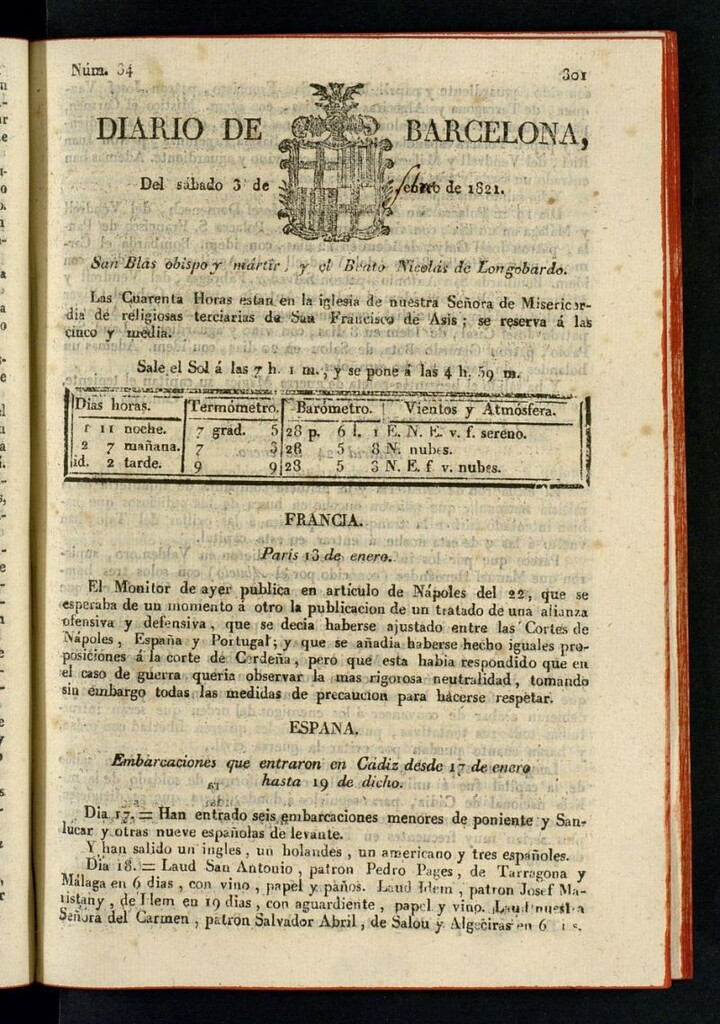 Núm. 34
301
DIARIO DE BARCELONA,
Del sábado 3 de febrero de 1821.
San Blas obispo y mártir, y el Beato Nicolás de Longobardo.
Las Cuarenta Horas estan en la iglesia de nuestra Señora de Misericor-
dia de religiosas terciarias de San Francisco de Asis; se reserva á las
cinco y media.
Sale el Sol á las 7 h. 1 m., y se pone á las 4 h. 59 m.
Dias horas. Termómetro. Barómetro. Vientos y Atmósfera.
1 11 noche. 7 grad. 5 28 p. 6 l. 1 E. N. E. v. f. sereno.
2 7 mañana. 7 3 28 5 8 N. nubes.
id. 2 tarde. 9 9 28 5 3 N. E. f v. nubes.
FRANCIA.
París 13 de enero.
El Monitor de ayer publica en artículo de Nápoles del 22, que se
esperaba de un momento á otro la publicacion de un tratado de una alianza
ofensiva y defensiva, que se decia haberse ajustado entre las Cortes de
Nápoles, España y Portugal; y que se añadia haberse hecho iguales pro-
posiciónes á la corte de Cerdeña, pero que esta habia respondido que en
el caso de guerra queria observar la mas rigorosa neutralidad, tomando
sin embargo todas las medidas de precaucion para hacerse respetar.
ESPANA.
Embarcaciones que entraron en Cádiz desde 17 de enero
hasta 19 de dicho.
Dia 17. = Han entrado seis embarcaciones menores de poniente y San-
lucar y otras nueve españolas de levante.
Y han salido un ingles, un holandes, un americano y tres españoles.
Dia 18. = Laud San Antonio, patron Pedro Pages, de Tarragona y
Málaga en 6 dias, con vino, papel y paños. Laud Idem, patron Josef Ma-
ristany, de Idem en 19 dias, con aguardiente, papel y vino. Laud nuestra
Señora del Carmen, patron Salvador Abril, de Salou y Algeciras en 6